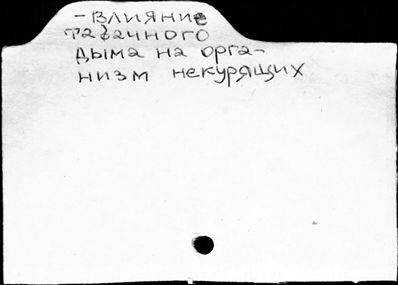 - Влияние
табачного
дыма на орга-
низм некурящих